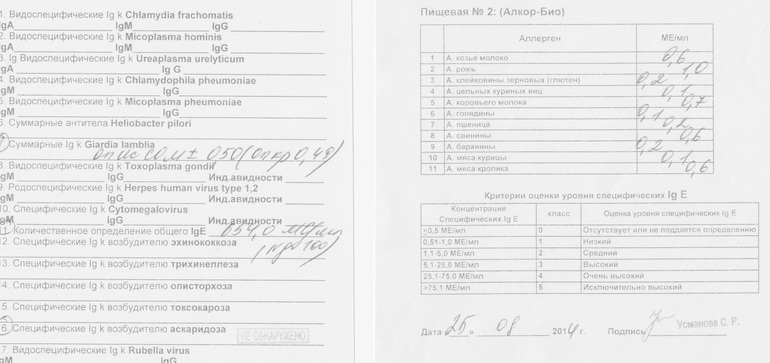 1. Видоспецифические Ig k Chlamydia frachomatis
IgA IgM IgG
2. Видоспецифические Ig k Micoplasma hominis
IgA IgM IgG
3. Ig Видоспецифические Ig k Ureaplasma urelyticum
IgA Ig G
4. Видоспецифические Ig k Chlamydophila pheumoniae
IgM IgG
5. Видоспецифические Ig k Micoplasma pheumoniae
6. Суммарные антитела Heliobacter pilori
7 Суммарные Ig k Giardia lamblia
± 050 (Опкр 0,49)
8. Видоспецифические Ig k Toxoplasma gondii
IgM IgG Инд.авидности
9. Родоспецифические Ig k Herpes human virus type 1,2
IgM IgG Инд.авидности
10. Специфические Ig k Cytomegalovirus
IgM IgG Инд.авидности
11. Количественное определение общего IgE 654,0 МЕ/мл
12. Специфические Ig k возбудителю эхинококкоза
(N до 100)
13. Специфические Ig k возбудителю трихинеллеза
4. Специфические Ig k возбудителю описторхоза
5. Специфические Ig k возбудителю токсокароза
6. Специфические Ig k возбудителю аскаридоза
НЕ ОБНАРУЖЕНО
7. Видоспецифические Ig k Rubella virus
IgM IgG
Пищевая № 2: (Алкор-Био)
Аллерген МЕ/мл
1 А. козье молоко 0,6
2 А. рожь 1,0
3 А. клейковины зерновых (глютен) 0,2
4 А. цельных куриных яиц 0,1
5 А. коровьего молока 0,7
6 А. говядины 0,1
7 А. пшеница 0,2
8 А. свинины 0,6
9 А. баранины 0,2
10 А. мяса курицы 0,1
11 А. мяса кролика 0,6
Критерии оценки уровня специфических Ig E
Концентрация Специфических Ig E класс Оценка уровня специфических Ig E
<0,5 МЕ/мл 0 Отсутствует или не поддается определению
0,51-1,0 МЕ/мл 1 Низкий
1,1-5,0 МЕ/мл 2 Средний
5,1-25,0 МЕ/мл 3 Высокий
25,1-75,0 МЕ/мл 4 Очень высокий
>75,1 МЕ/мл 5 Исключительно высокий
Дата 25 » 08 2014 г. Подпись Усманова С. Р.